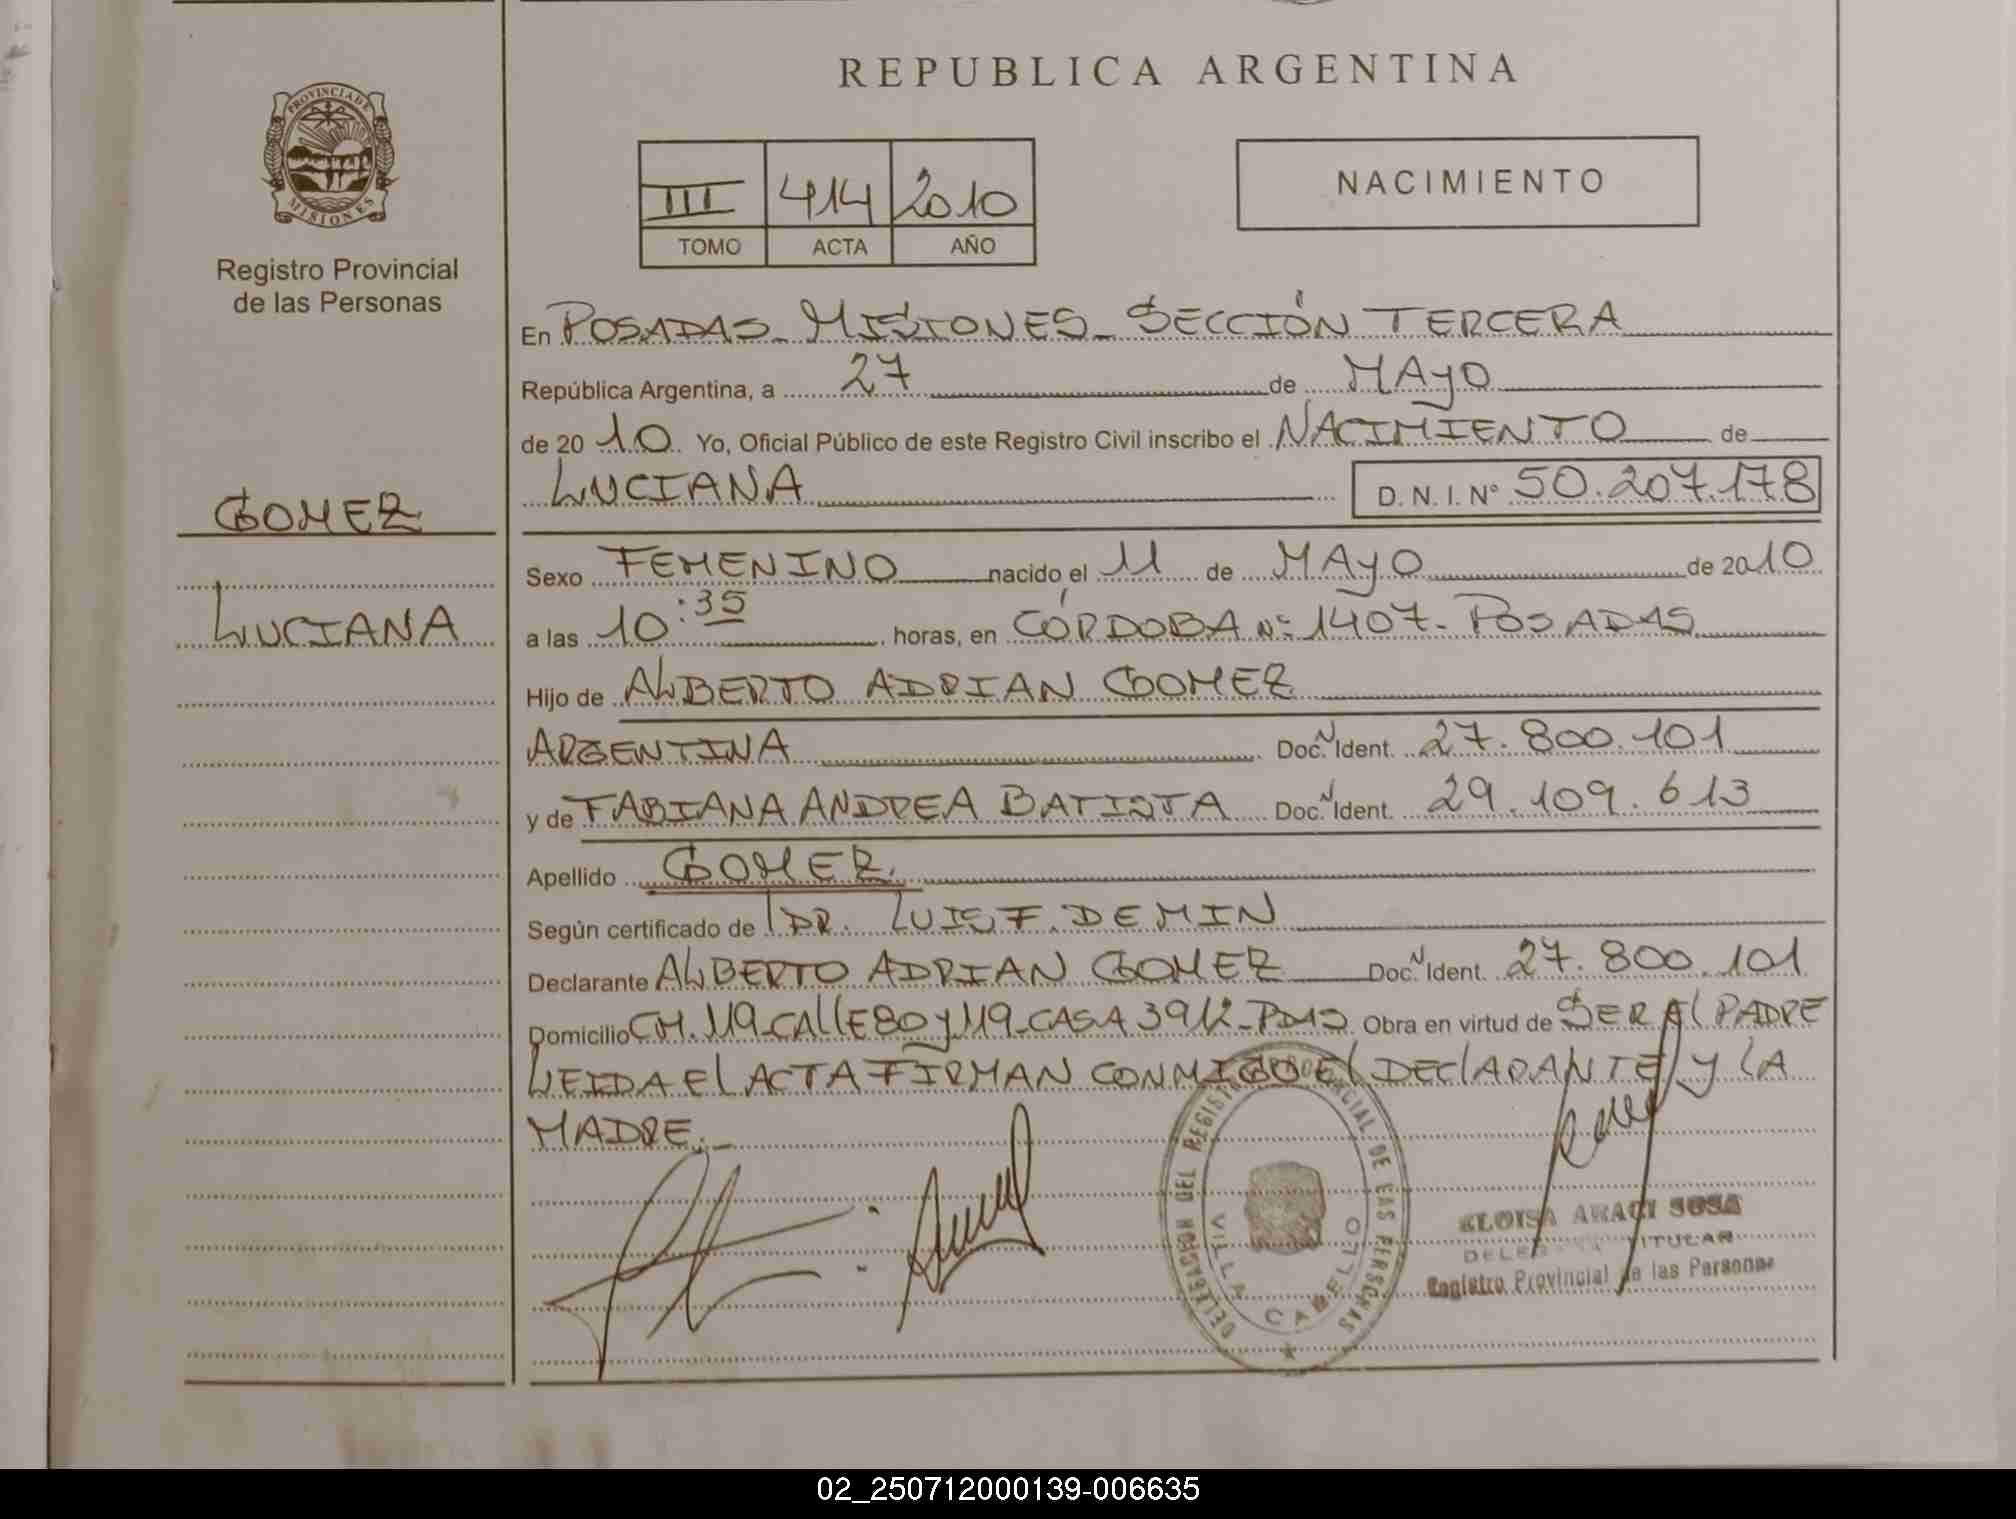 REPUBLICA ARGENTINA
PROVINCIA DE
MISIONES
Registro Provincial
de las Personas
III 414 2010
TOMO ACTA AÑO
NACIMIENTO
En POSADAS - MISIONES - SECCIÓN TERCERA
República Argentina, a 27 de MAYO
de 20 10 Yo, Oficial Público de este Registro Civil inscribo el NACIMIENTO de
LUCIANA D. N. I. Nº 50.207.178
GOMEZ
LUCIANA
Sexo FEMENINO nacido el 11 de MAYO de 2010
a las 10:35 horas, en CÓRDOBA Nº 1407 - POSADAS
Hijo de ALBERTO ADRIAN GOMEZ
ARGENTINA Doc. N Ident. 27.800.101
y de FABIANA ANDREA BATISTA Doc. N Ident. 29.109.613
Apellido GOMEZ
Según certificado de DR. LUIS F. DEMIN
Declarante ALBERTO ADRIAN GOMEZ Doc. N Ident. 27.800.101
Domicilio CH. 119 - CALLE 80 y 119 - CASA 3912 - PDAS Obra en virtud de SER El PADRE
LEIDA El ACTA FIRMAN CONMIGO El DEClARANTE Y LA
MADRE. -
DELEGACION DEL REGISTRO PROVINCIAL DE LAS PERSONAS
VILLA CABELLO
ELOISA ARACI SOSA
DELEGADA TITULAR
Registro Provincial de las Personas
02_250712000139-006635